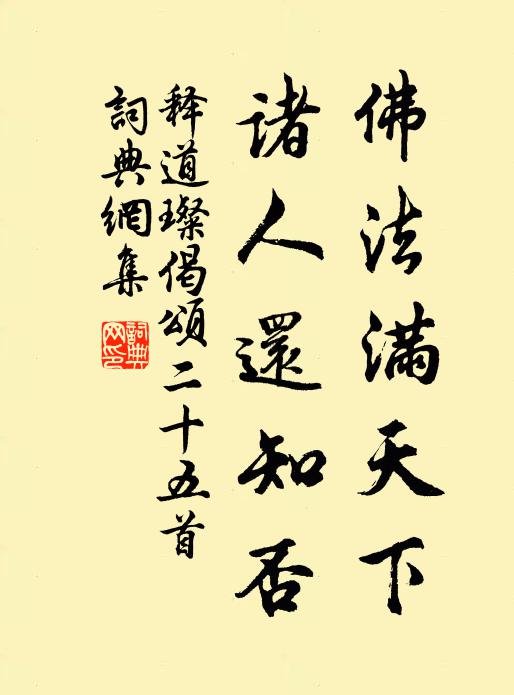 佛法滿天下
諸人還知否
释道璨偈頌二十五首
詞典網集
詞典
网印